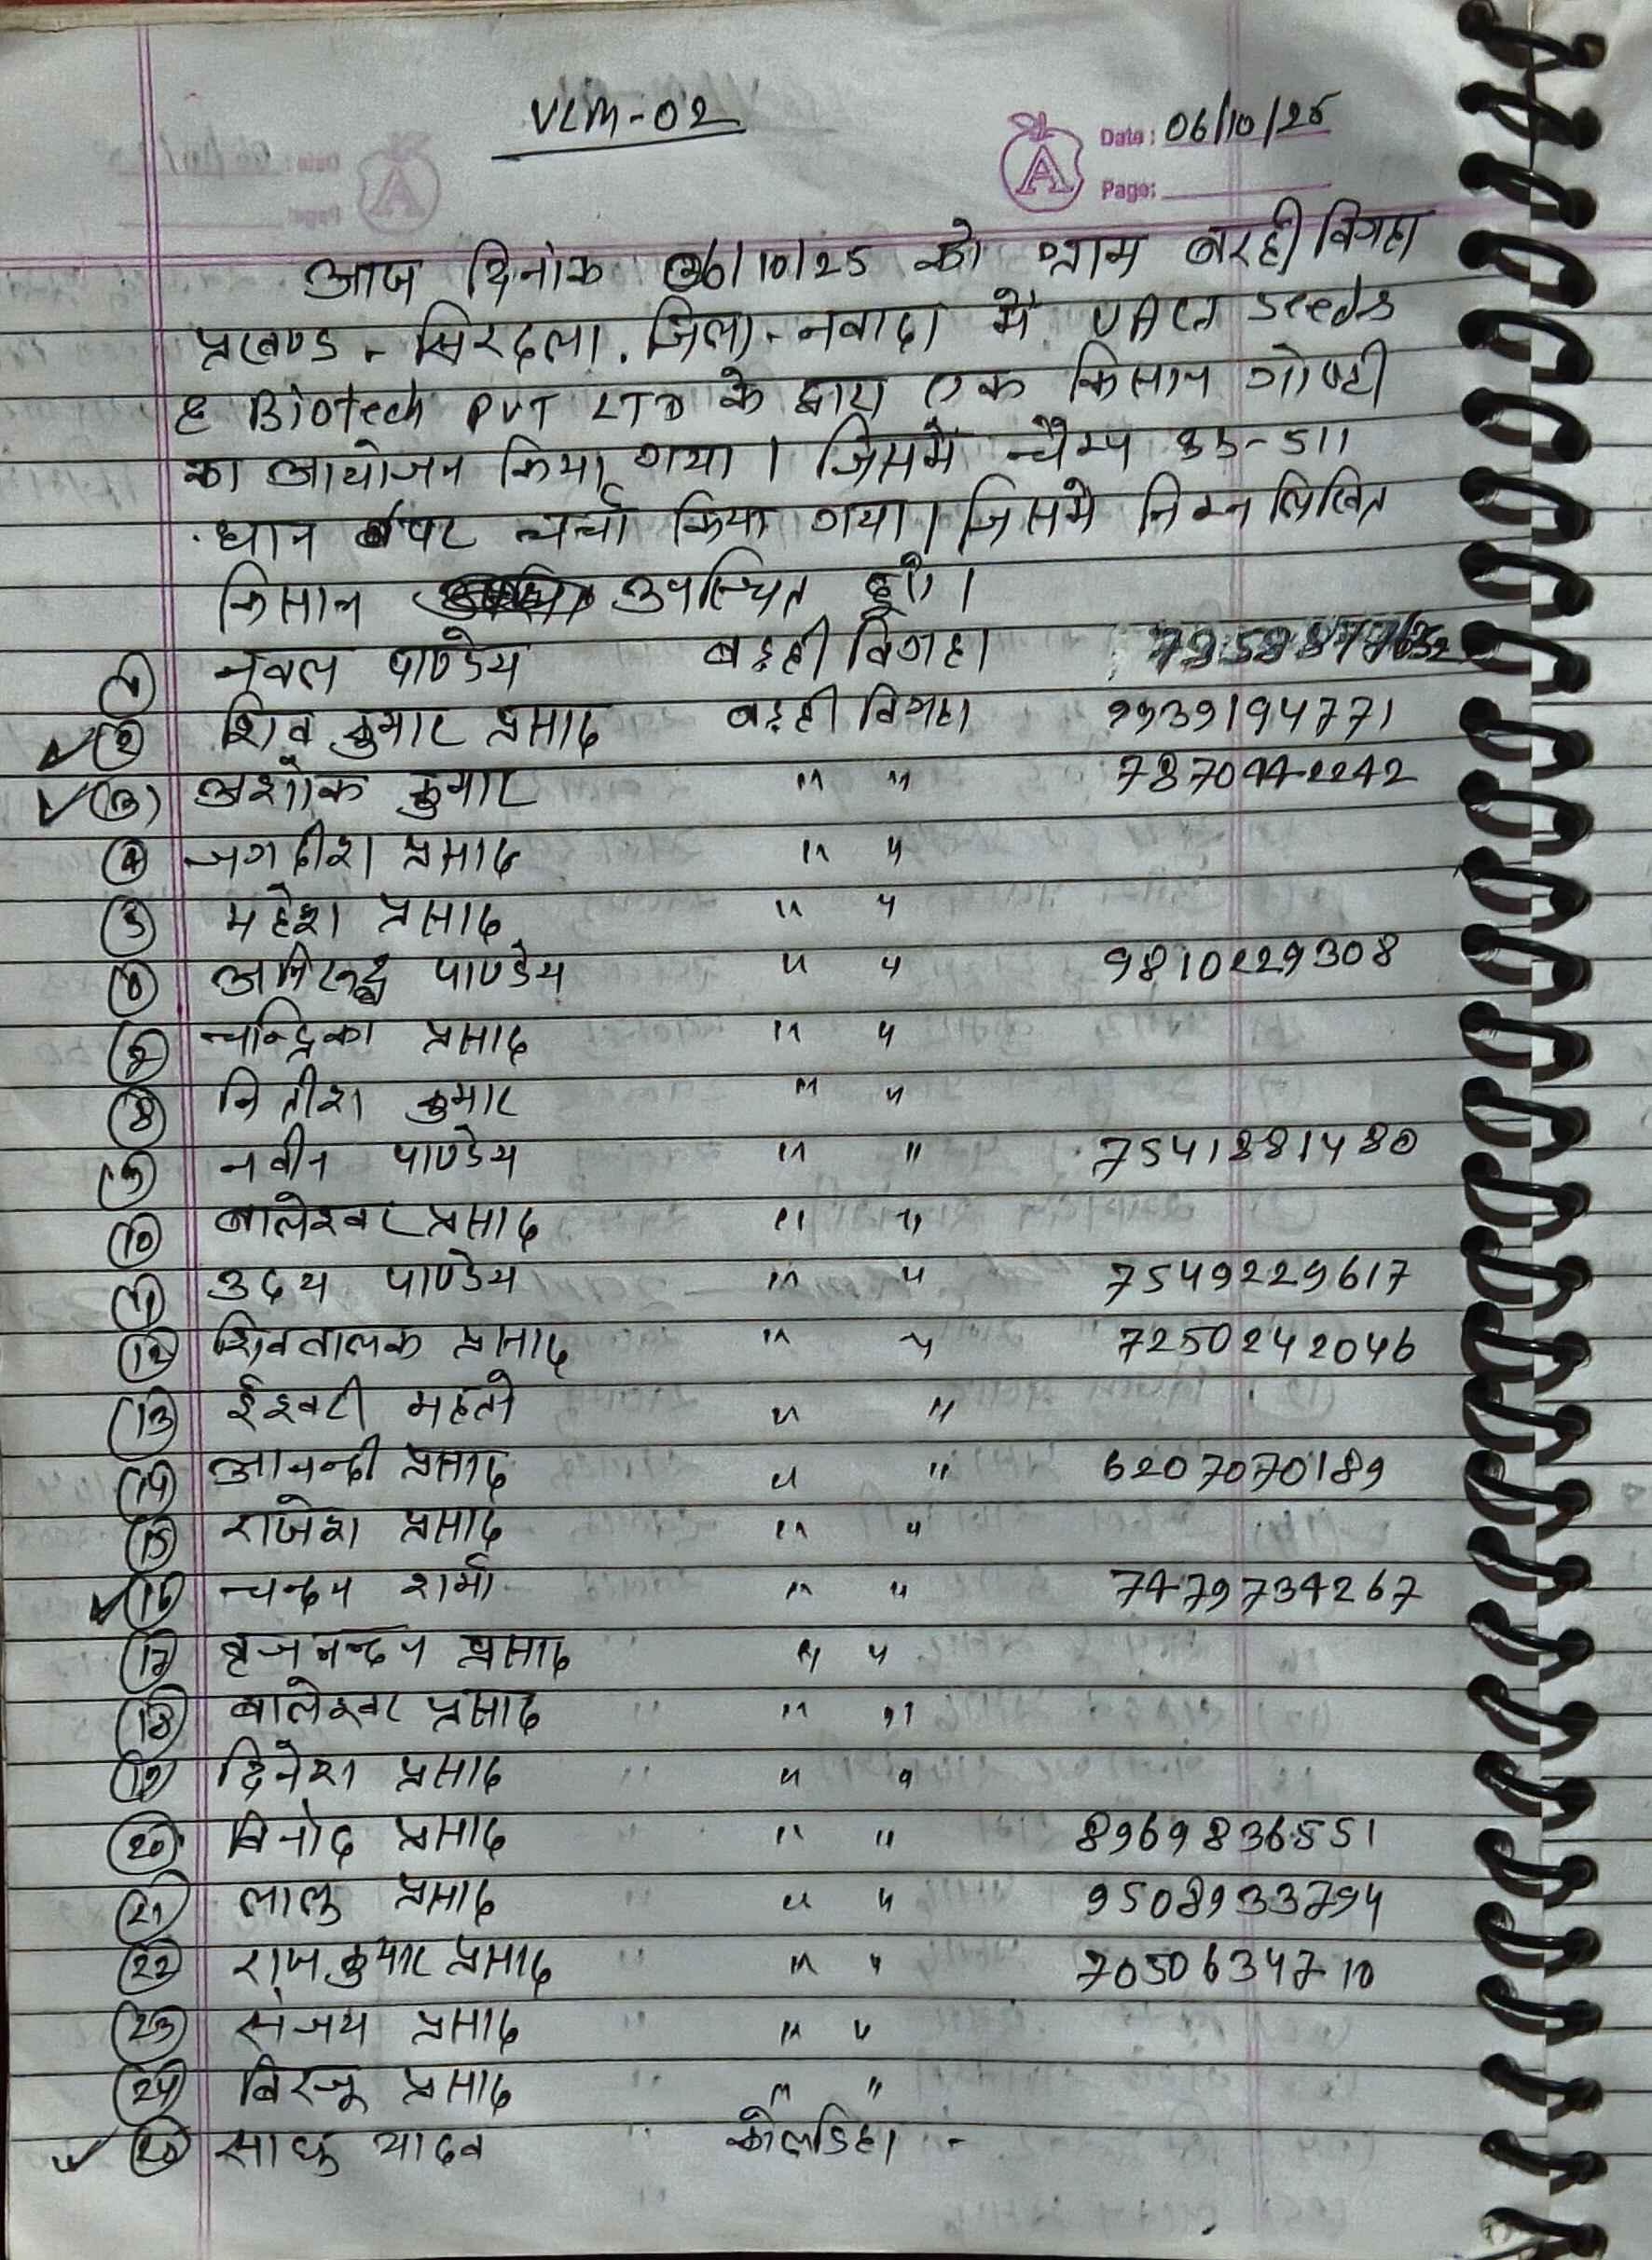 VLM-02
Date: 06/10/25
Page:
आज दिनांक 06/10/25 को ग्राम बरही विगहा
प्रखण्ड - सिरदला. जिला - नवादा में Seeds
& Biotech PVT LTD के द्वारा एक किसान गोष्ठी
का आयोजन किया गया । जिसमें चैम्प 33-511
धान पर चर्चा किया गया । जिसमे निम्न लिखित
किसान उपस्थित हुए ।
1 नवल पाण्डेय बढ़ही विगहा
2 शिव कुमार प्रसाद बढ़ही विगहा 9939194771
3 अशोक कुमार " " 7870442242
4 जगदीश प्रसाद " "
5 महेश प्रसाद " "
6 अनिरुद्ध पाण्डेय " " 9810229308
7 चन्द्रिका प्रसाद " "
8 नितीश कुमार " "
9 नवीन पाण्डेय " " 7541881480
10 बालेश्वर प्रसाद " "
11 उदय पाण्डेय " " 7549229617
12 शिवतालक प्रसाद " " 7250242046
13 ईश्वरी महतो " "
14 आनन्दी प्रसाद " " 6207070189
15 राजेश प्रसाद " "
16 चन्दन शर्मा " " 7479734267
17 बृजनन्दन प्रसाद " "
18 बालेश्वर प्रसाद " "
19 दिनेश प्रसाद " "
20 विनोद प्रसाद " " 8969836551
21 लालु प्रसाद " " 9508933794
22 राजकुमार प्रसाद " " 7050634710
23 संजय प्रसाद " "
24 बिरजू प्रसाद " "
25 साधु यादव कोलडिहा -